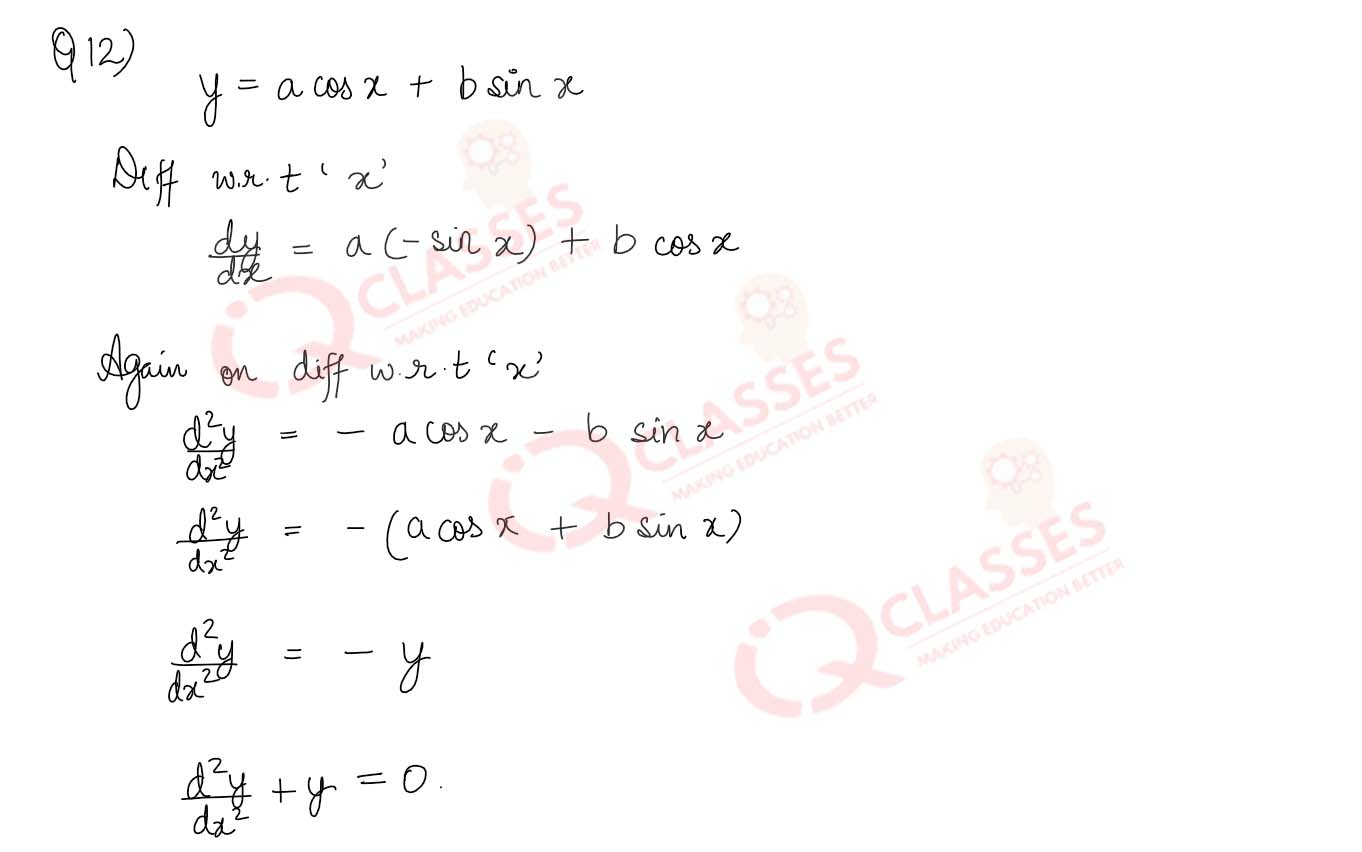 Q12)
y = a cos x + b sin x
Diff w.r.t 'x'
dy/dx = a(-sin x) + b cos x
Again on diff w.r.t 'x'
d²y/dx² = - a cos x - b sin x
d²y/dx² = - (a cos x + b sin x)
d²y/dx² = - y
d²y/dx² + y = 0.
iQ CLASSES
MAKING EDUCATION BETTER
iQ CLASSES
MAKING EDUCATION BETTER
iQ CLASSES
MAKING EDUCATION BETTER